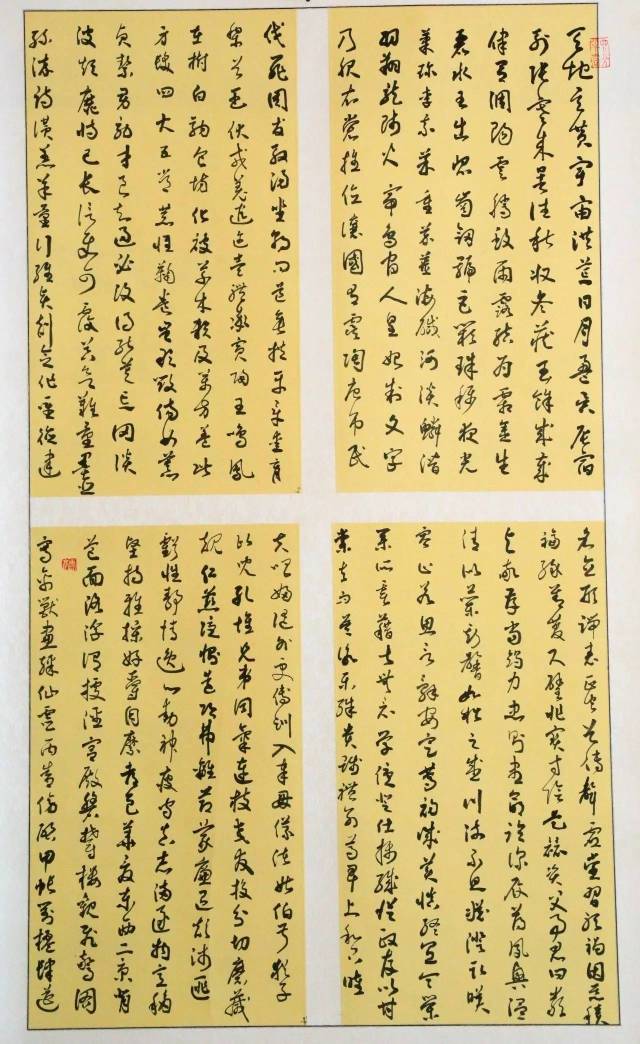 天地玄黃宇宙洪荒日月盈昃辰宿
列張寒來暑往秋收冬藏閏餘成歲
律呂調陽雲騰致雨露結為霜金生
麗水玉出崑崗劍號巨闕珠稱夜光
菓珍李柰菜重芥薑海鹹河淡鱗潛
羽翔龍師火帝鳥官人皇始制文字
乃服衣裳推位讓國有虞陶唐弔民
伐罪周發殷湯坐朝問道垂拱平章愛育
黎首臣伏戎羌遐邇壹體率賓歸王鳴鳳
在樹白駒食場化被草木賴及萬方蓋此
身髮四大五常恭惟鞠養豈敢毀傷女慕
貞潔男效才良知過必改得能莫忘罔談
彼短靡恃己長信使可覆器欲難量墨悲
絲染詩讚羔羊景行維賢剋念作聖德建
名立形端表正空谷傳聲虛堂習聽禍因惡積
福緣善慶尺璧非寶寸陰是競資父事君曰嚴
與敬孝當竭力忠則盡命臨深履薄夙興溫
凊似蘭斯馨如松之盛川流不息淵澄取映
容止若思言辭安定篤初誠美慎終宜令榮
業所基籍甚無竟學優登仕攝職從政存以甘
棠去而益詠樂殊貴賤禮別尊卑上和下睦
夫唱婦隨外受傅訓入奉母儀諸姑伯叔猶子
比兒孔懷兄弟同氣連枝交友投分切磨箴
規仁慈隱惻造次弗離節義廉退顛沛匪
虧性靜情逸心動神疲守真志滿逐物意移
堅持雅操好爵自縻都邑華夏東西二京背
芒面洛浮渭據涇宮殿盤鬱樓觀飛驚圖
寫禽獸畫綵仙靈丙舍傍啟甲帳對楹肆筵